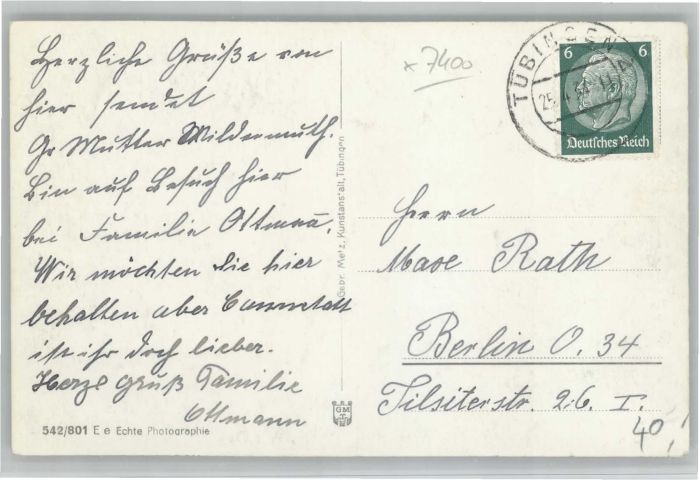 Herzliche Grüße von
hier sendet
Gr Mutter Wildermuth.
Bin auf Besuch hier
bei Familie Ottmann.
Wir möchten sie hier
behalten aber Cannstatt
ist ihr doch lieber.
Herzl Gruß Familie
Ottmann
542/801 E e Echte Photographie
Gebr. Metz, Kunstanstalt, Tübingen
GM
x 7400
TÜBINGEN
25.
6 6
Deutsches Reich
Herrn
Max Rath
Berlin O. 34
Tilsiterstr. 26. I.
40,